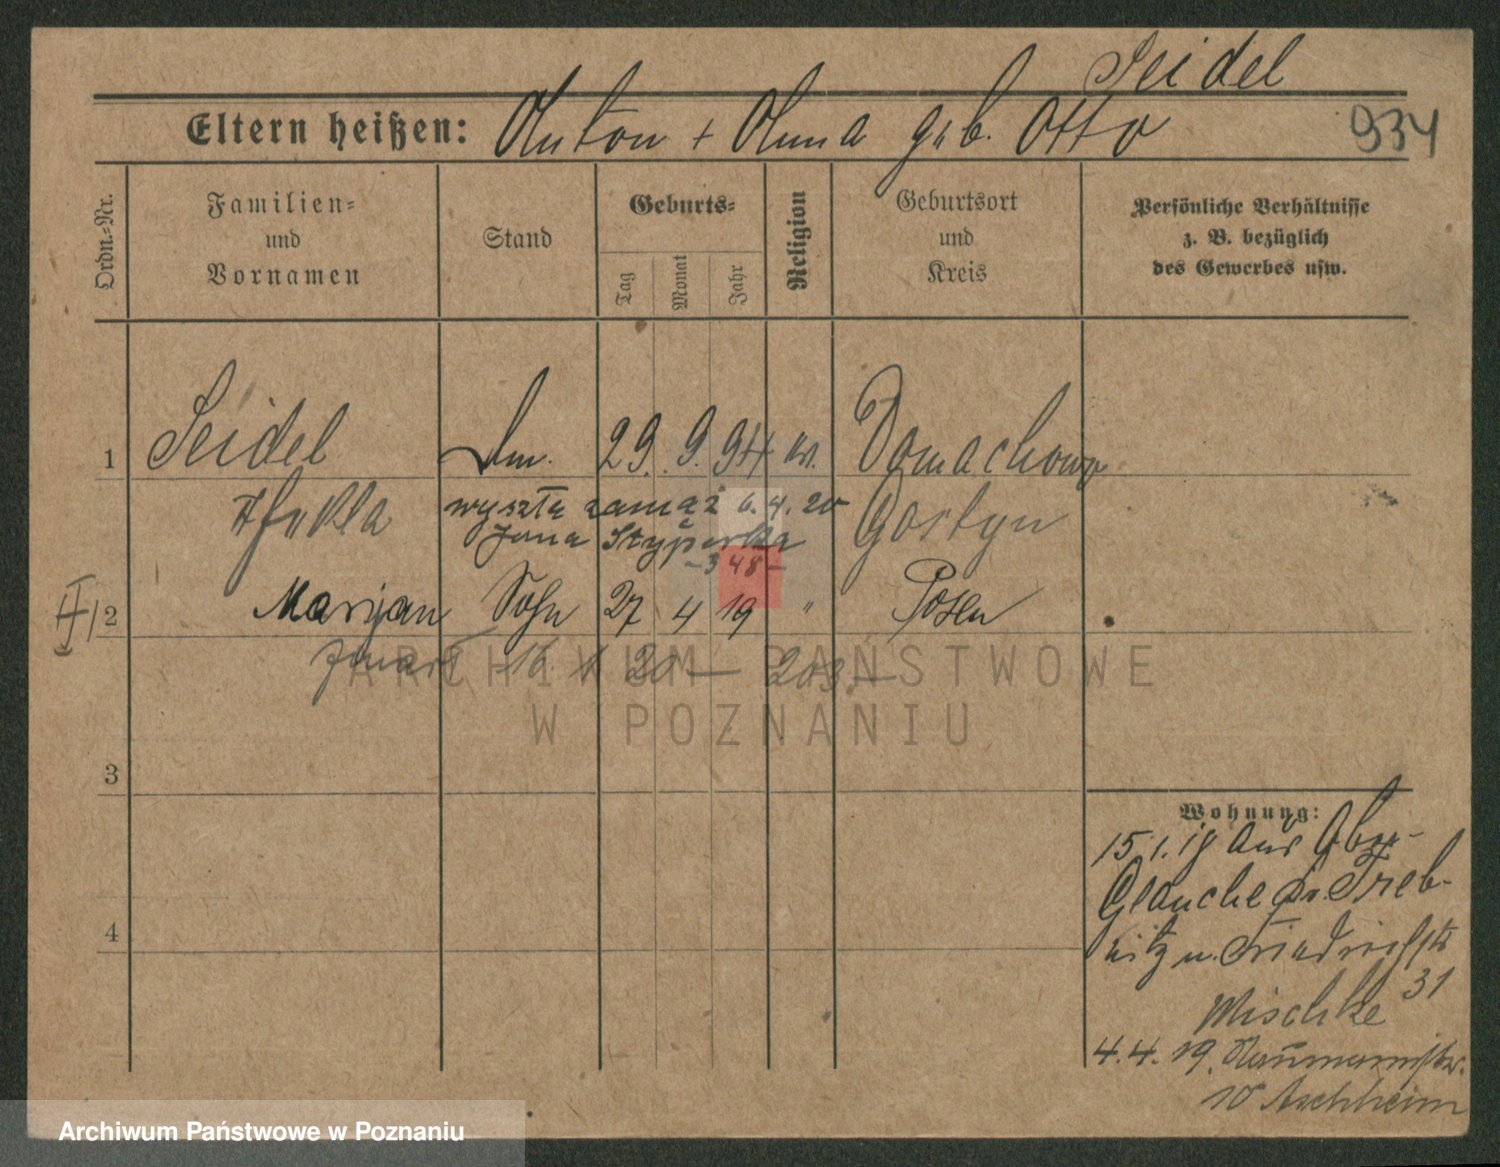 Seidel
Eltern heißen: Anton + Anna geb. Otto
934
Ordn.-Nr.
Familien-
und
Vornamen
Stand
Geburts-
Tag
Monat
Jahr
Religion
Geburtsort
und
Kreis
Persönliche Verhältnisse
z. B. bezüglich
des Gewerbes usw.
1 Seidel Dm. 29. 9. 94 Domachowo
Thekla wyszła zamąż 6. 4. 20 Gostyn
Jana
- 348 -
II/2 Marijan Sohn 27 4 19 " Posen
16. 20 — 203. —
3
4
Wohnung:
15.1.19 aus Ober-
Glauche Kr. Treb-
nitz n. Friedrichstr
31
Mischke
4.4.19. Naumannstr.
10 Aschheim
ARCHIWUM PAŃSTWOWE
W POZNANIU
Archiwum Państwowe w Poznaniu